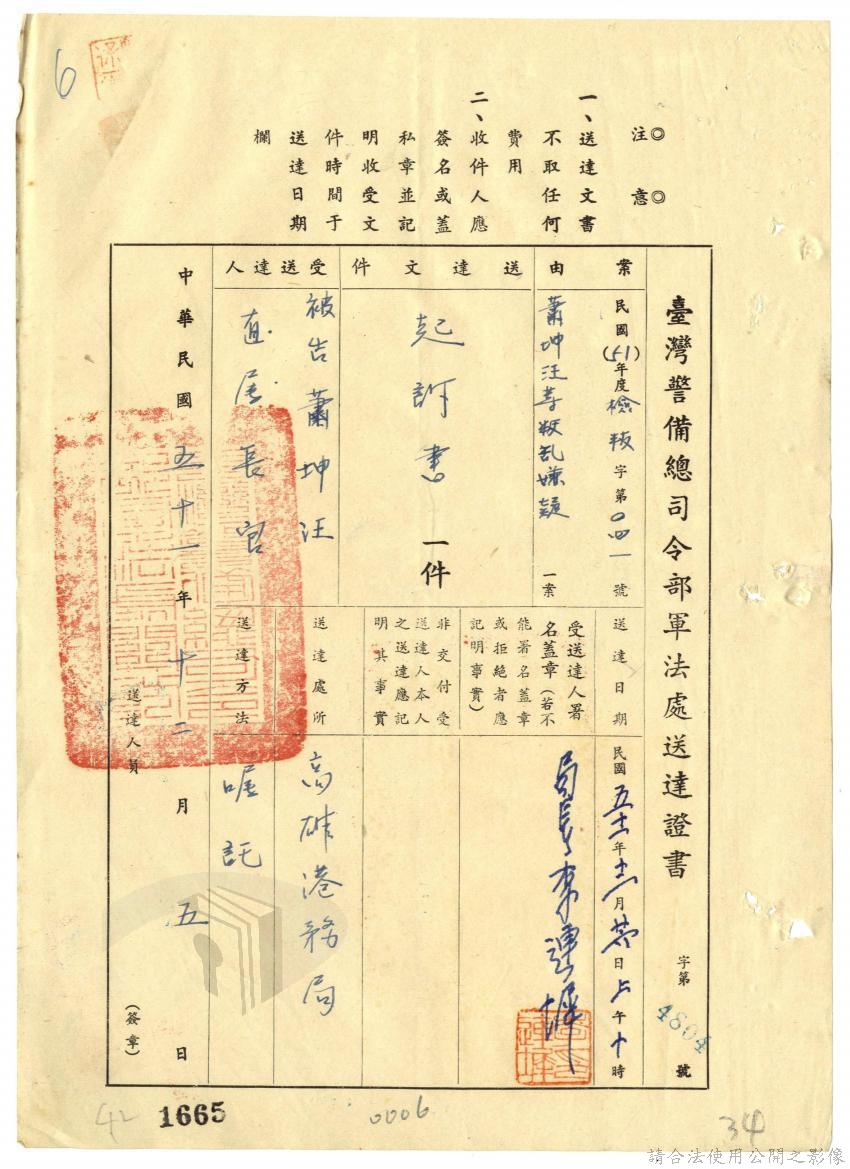 6
◎注意◎
一、送達文書
不取任何
費用
二、收件人應
簽名或蓋
私章並記
明收受文
件時間于
送達日期
欄
臺灣警備總司令部軍法處送達證書
字第4804號
案由
民國(51)年度檢叛字第〇四一號
蕭坤汪等叛乱嫌疑一案
送達日期
民國五十一年十二月 日上午十時
送達文件
起訴書一件
受送達人署
名蓋章(若不
能署名蓋章
或拒絕者應
記明事實)
局長李連墀
非交付受
送達人本人
之送達應記
明其事實
受送達人
被告蕭坤汪
直屬長官
送達處所
高雄港務局
送達方法
囑託
中華民國五十一年十二月五日
送達人員
(簽章)
42
1665
0006
34
請合法使用公開之影像